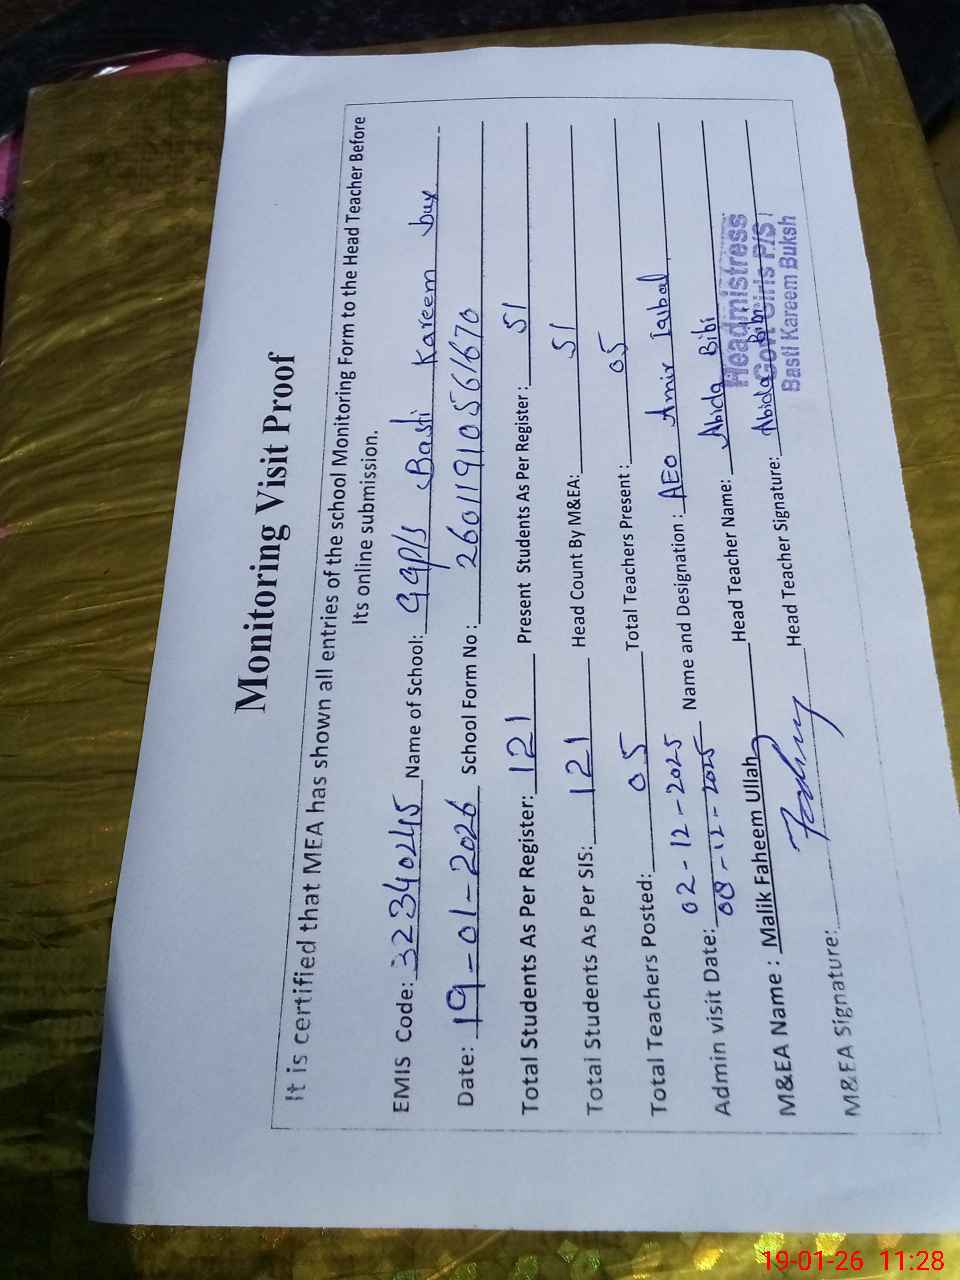 Monitoring Visit Proof
It is certified that MEA has shown all entries of the school Monitoring Form to the Head Teacher Before
Its online submission.
EMIS Code: 32340245 Name of School: GGP/S Basti Kareem bux
Date: 19-01-2026 School Form No: 26011910561670
Total Students As Per Register: 121 Present Students As Per Register: 51
Total Students As Per SIS: 121 Head Count By M&EA: 51
Total Teachers Posted: 05 Total Teachers Present: 05
02-12-2025
Admin visit Date: 08-12-2025 Name and Designation: AEO Amir Iqbal
M&EA Name : Malik Faheem Ullah Head Teacher Name: Abida Bibi
M&EA Signature: Head Teacher Signature: Abida Bibi
Headmistress
Govt Girls P/S
Basti Kareem Buksh
19-01-26 11:28